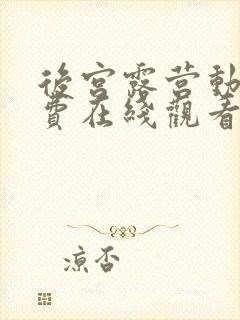 後宮露营動
費在綫觀看
凉否